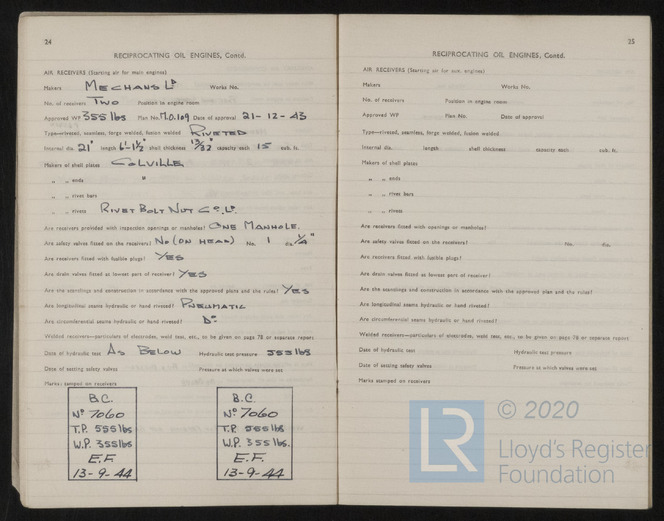 24
RECIPROCATING OIL ENGINES, Contd.
AIR RECEIVERS (Starting air for main engines)
Makers MECHANS Lᴰ Works No.
No. of receivers TWO Position in engine room
Approved WP 355 lbs Plan No. M.O.109 Date of approval 21-12-43
Type—riveted, seamless, forge welded, fusion welded RIVETED
Internal dia. 21" length 6'-1½" shell thickness 13/32" capacity each 15 cub. ft.
Makers of shell plates COLVILLE
" " ends "
" " rivet bars
" " rivets RIVET BOLT NUT Cº. Lᴰ.
Are receivers provided with inspection openings or manholes? ONE MANHOLE.
Are safety valves fitted on the receivers? No (ON HEAD) No. 1 dia. ¼"
Are receivers fitted with fusible plugs? YES
Are drain valves fitted at lowest part of receiver? YES
Are the scantlings and construction in accordance with the approved plans and the rules? YES
Are longitudinal seams hydraulic or hand riveted? PNEUMATIC
Are circumferential seams hydraulic or hand riveted? Dº
Welded receivers—particulars of electrodes, weld test, etc., to be given on page 78 or separate report
Date of hydraulic test AS BELOW Hydraulic test pressure 555 lbs
Date of setting safety valves Pressure at which valves were set
Marks stamped on receivers
B.C.
Nº 7060
T.P. 555 lbs
W.P. 355 lbs
E.F.
13-9-44
B.C.
Nº 7060
T.P. 555 lbs
W.P. 355 lbs.
E.F.
13-9-44
25
RECIPROCATING OIL ENGINES, Contd.
AIR RECEIVERS (Starting air for aux. engines)
Makers Works No.
No. of receivers Position in engine room
Approved WP Plan No. Date of approval
Type—riveted, seamless, forge welded, fusion welded
Internal dia. length shell thickness capacity each cub. ft.
Makers of shell plates
" " ends
" " rivet bars
" " rivets
Are receivers fitted with inspection openings or manholes?
Are safety valves fitted on the receivers? No. dia.
Are receivers fitted with fusible plugs?
Are drain valves fitted at lowest part of receiver?
Are the scantlings and construction in accordance with the approved plan and the rules?
Are longitudinal seams hydraulic or hand riveted?
Are circumferential seams hydraulic or hand riveted?
Welded receivers—particulars of electrodes, weld test, etc., to be given on page 78 or separate report
Date of hydraulic test Hydraulic test pressure
Date of setting safety valves Pressure at which valves were set
Marks stamped on receivers
LR
© 2020
Lloyd's Register
Foundation